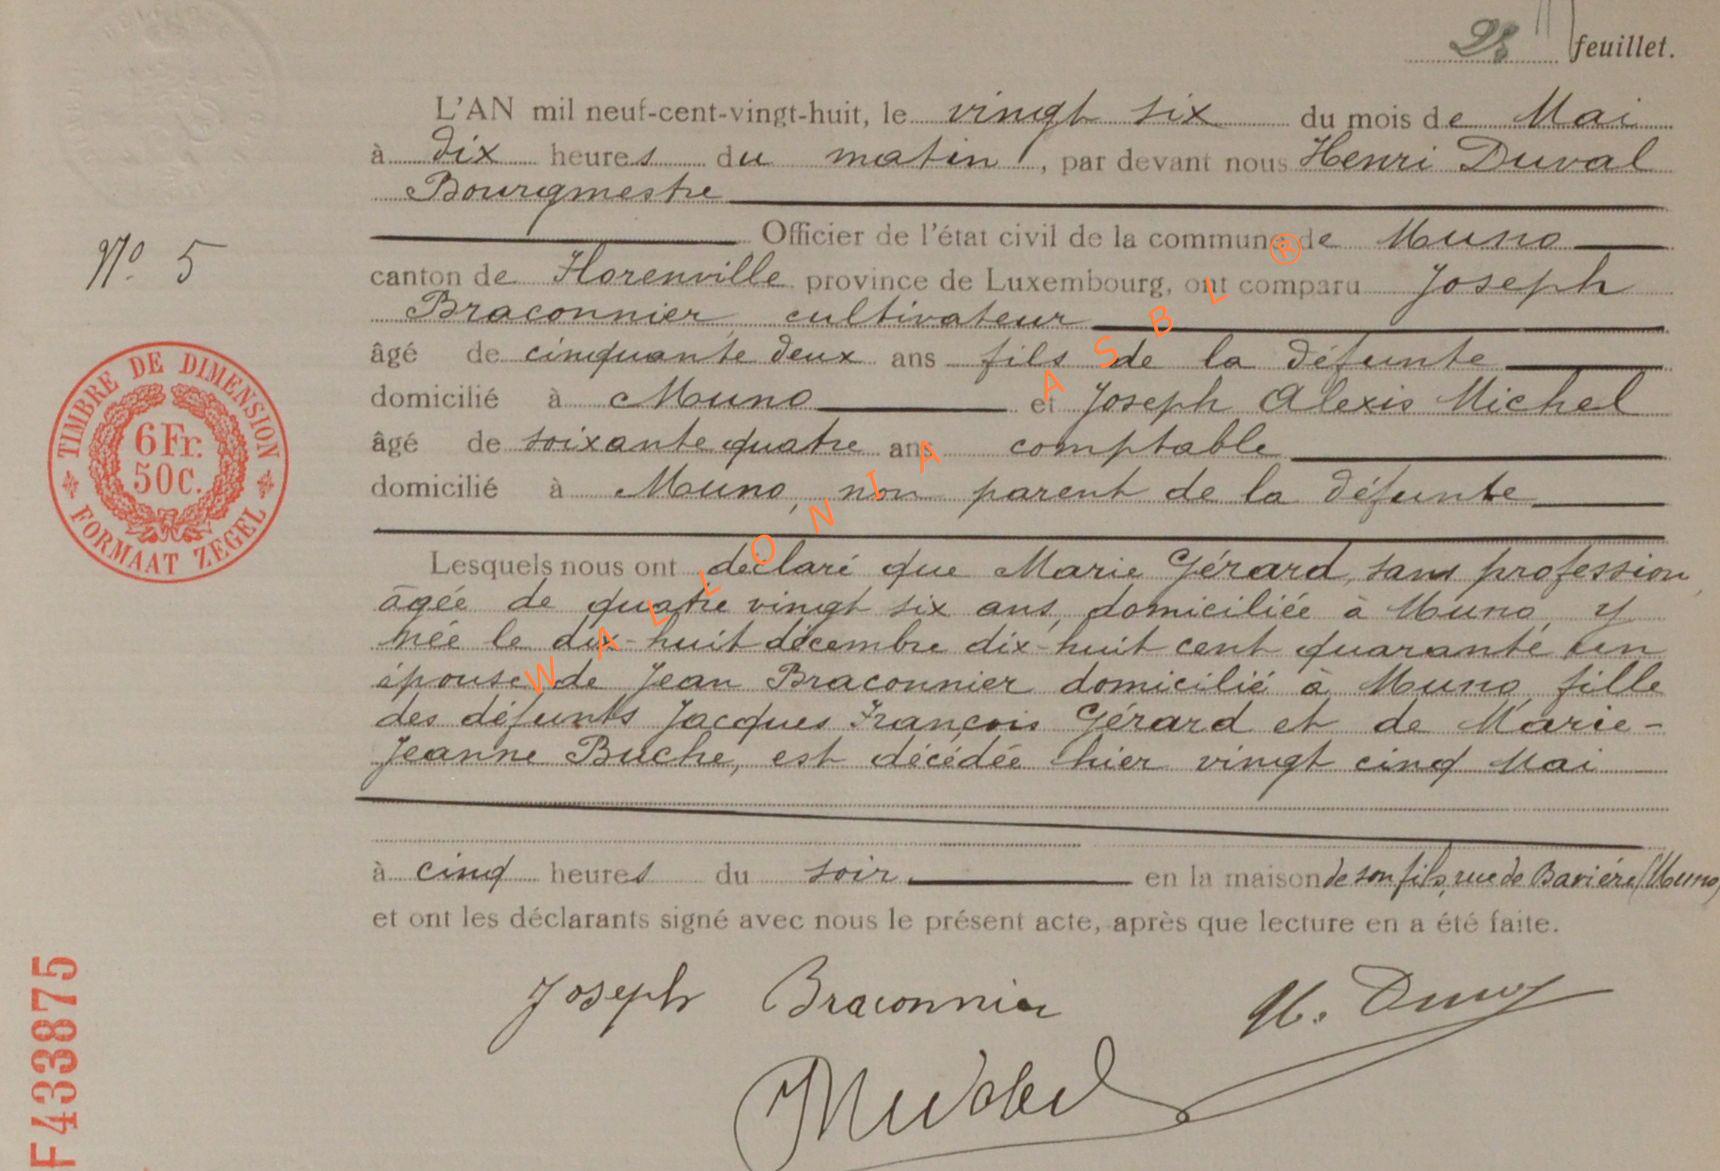 28 feuillet.
L'AN mil neuf-cent-vingt-huit, le vingt six du mois de Mai
à dix heures du matin, par devant nous Henri Duval
Bourgmestre
Officier de l'état civil de la commune de Muno
N° 5
canton de Florenville province de Luxembourg, ont comparu Joseph
Braconnier cultivateur
âgé de cinquante deux ans fils de la défunte
domicilié à Muno et Joseph Alexis Michel
âgé de soixante quatre ans comptable
domicilié à Muno, non parent de la défunte
TIMBRE DE DIMENSION
6 Fr.
50 C.
FORMAAT ZEGEL
Lesquels nous ont déclaré que Marie Gérard, sans profession,
âgée de quatre vingt six ans, domiciliée à Muno, y
née le dix-huit décembre dix-huit cent quarante un
épouse de Jean Braconnier domicilié à Muno, fille
des défunts Jacques François Gérard et de Marie-
Jeanne Buche, est décédée hier vingt cinq Mai
à cinq heures du soir en la maison de son fils, rue de (Muno)
et ont les déclarants signé avec nous le présent acte, après que lecture en a été faite.
Joseph Braconnier H. Duval
Michel
F433875
WALLONIA ASBL ®